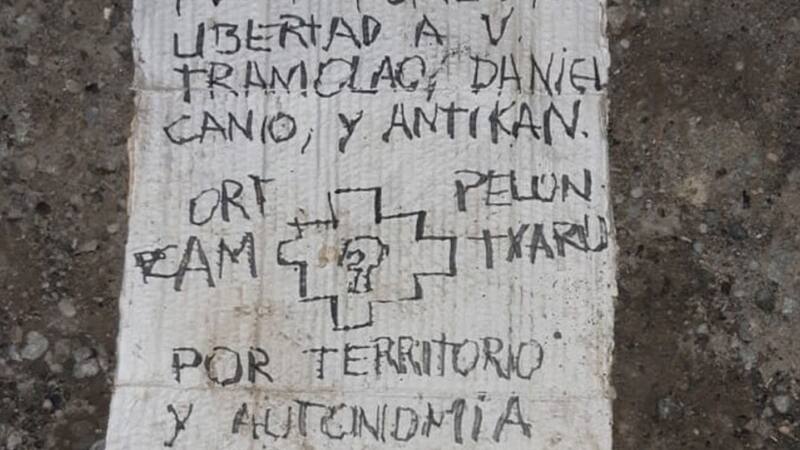 LIBERTAD A V.
TRAMOLAO, DANIEL
CANIO, Y ANTIKAN.
ORT PELUN
CAM TXARU
POR TERRITORIO
Y AUTONOMÍA